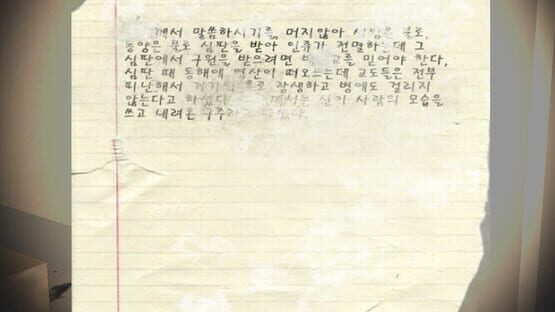 께서 말씀하시기를, 머지않아 서양은 불로,
동양은 물로 심판을 받아 인류가 전멸하는데 그
심판에서 구원을 받으려면 교를 믿어야 한다,
심판 때 동해에 영산이 떠오르는데 교도들은 전부
피난해서 거기서 장생하고 병에도 걸리지
않는다고 하셨다 께서는 신이 사람의 모습을
쓰고 내려온 구주라고